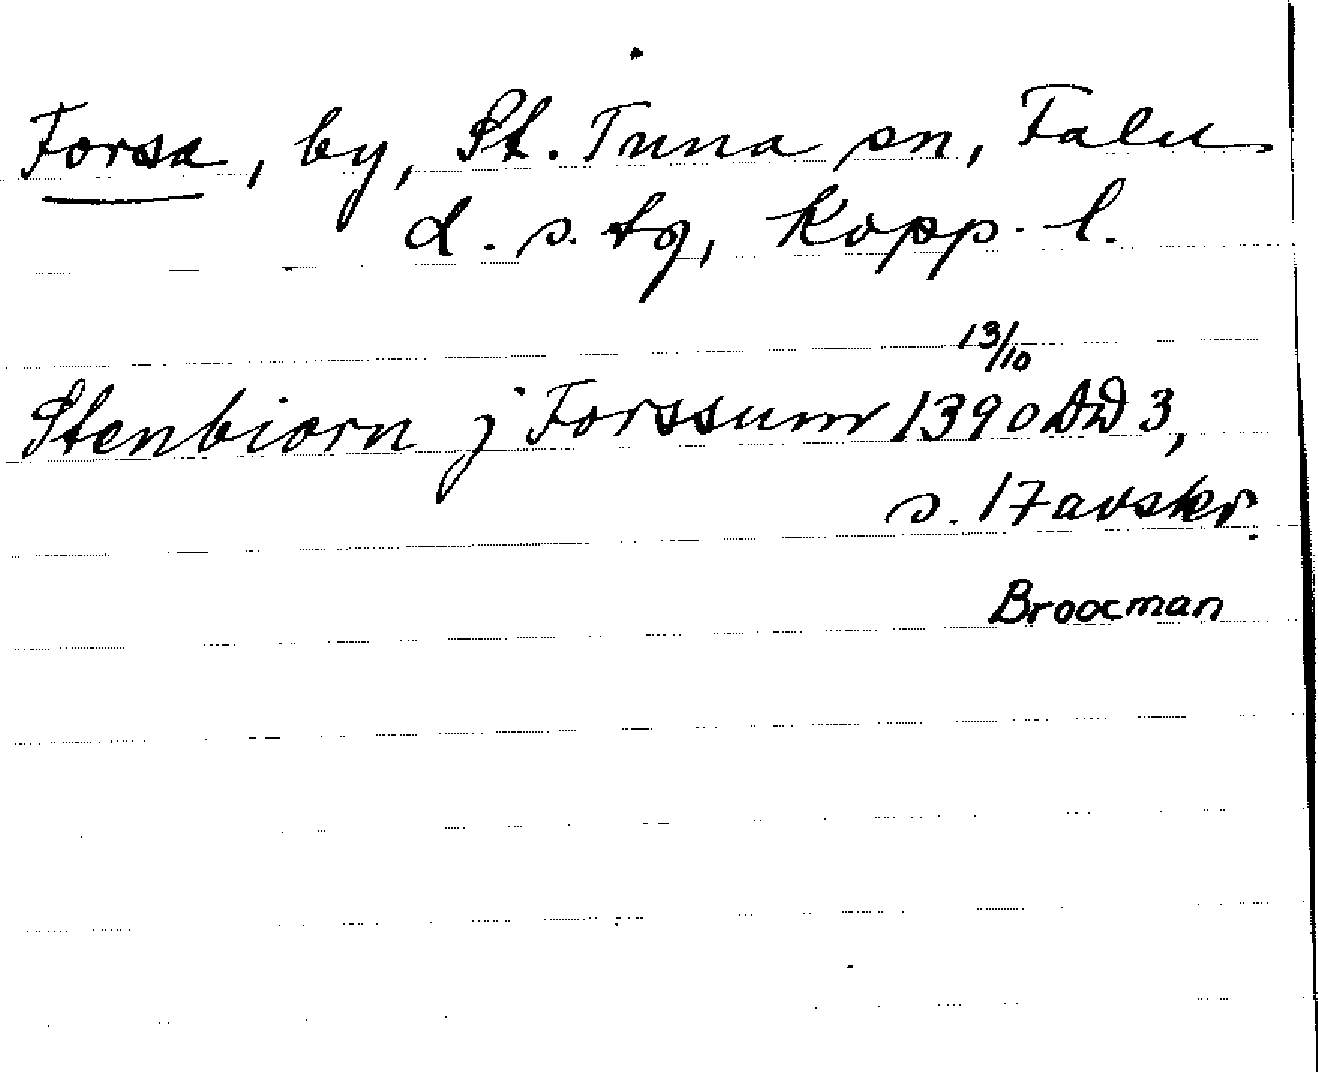 Forsa, by, St. Tuna sn, Falu
d. s. tg, Kopp. l.
13/10
Stenbiorn j Forssum 1390 DD 3,
s. 17 avskr.
Broocman